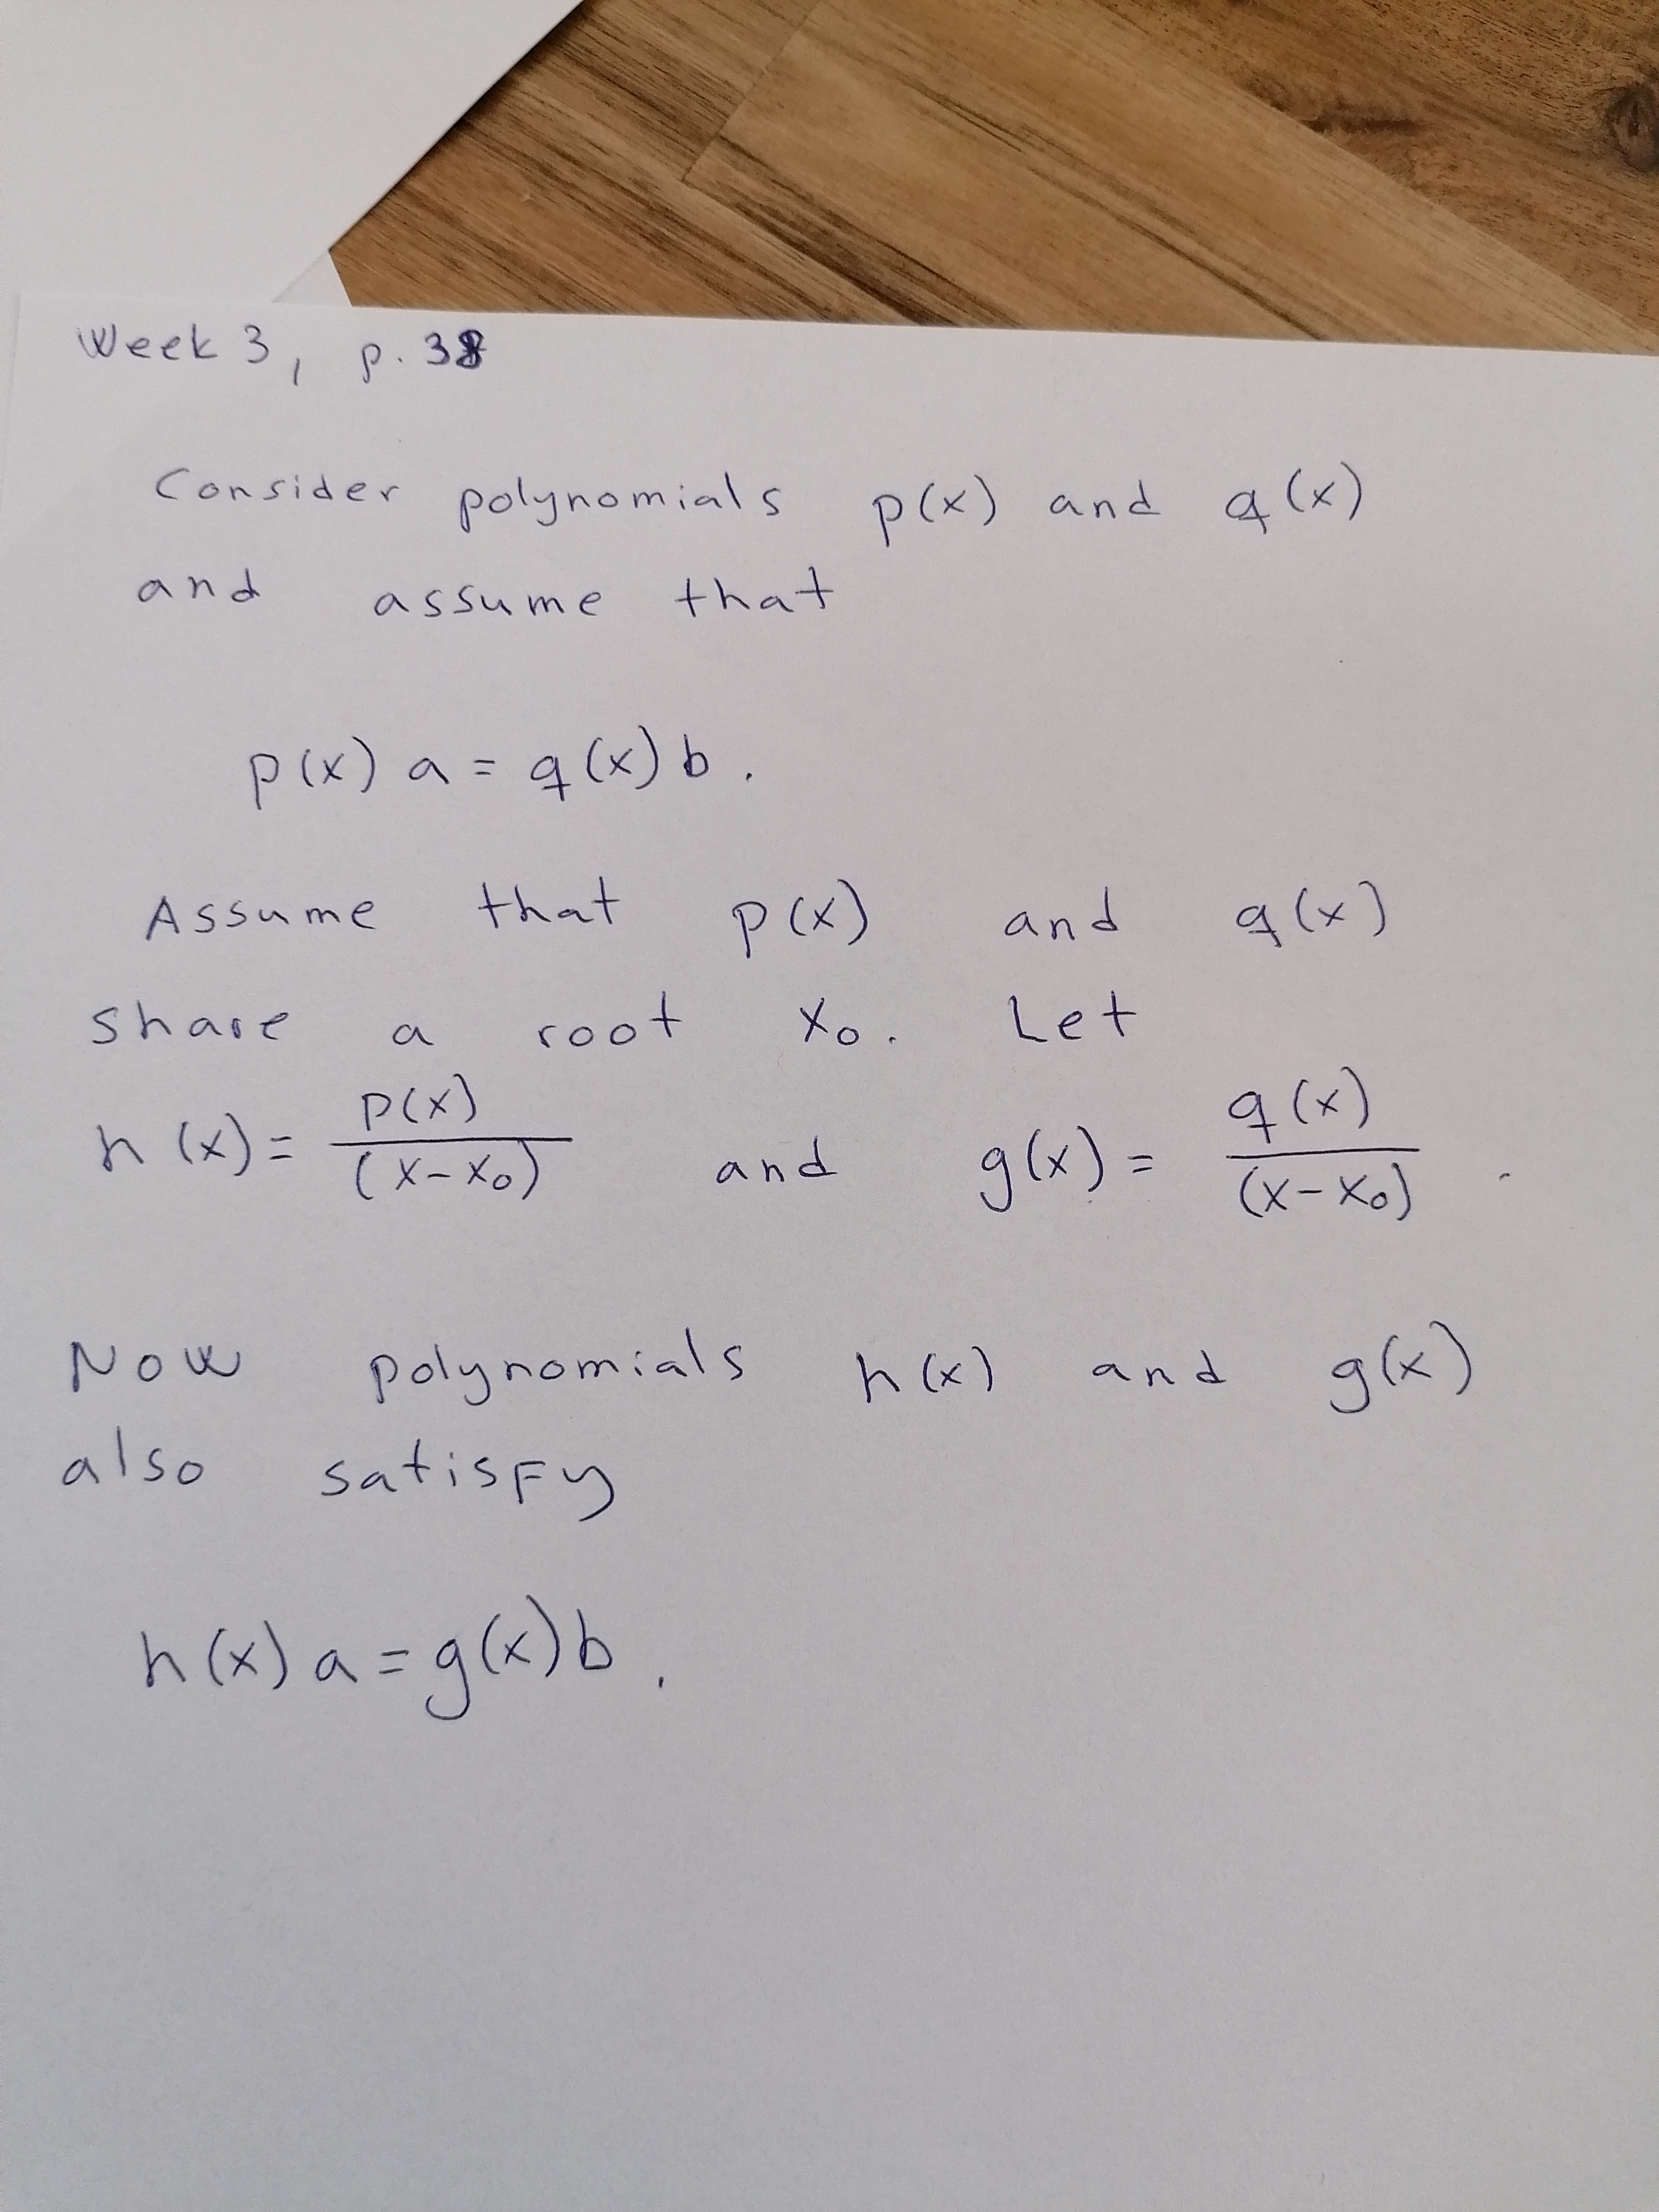 Week 3, p. 38
Consider polynomials p(x) and q(x)
and assume that
p(x) a = q(x) b .
Assume that p(x) and q(x)
share a root x₀. Let
h(x) = p(x)/(x-x₀) and g(x) = q(x)/(x-x₀) .
Now polynomials h(x) and g(x)
also satisfy
h(x) a = g(x) b .